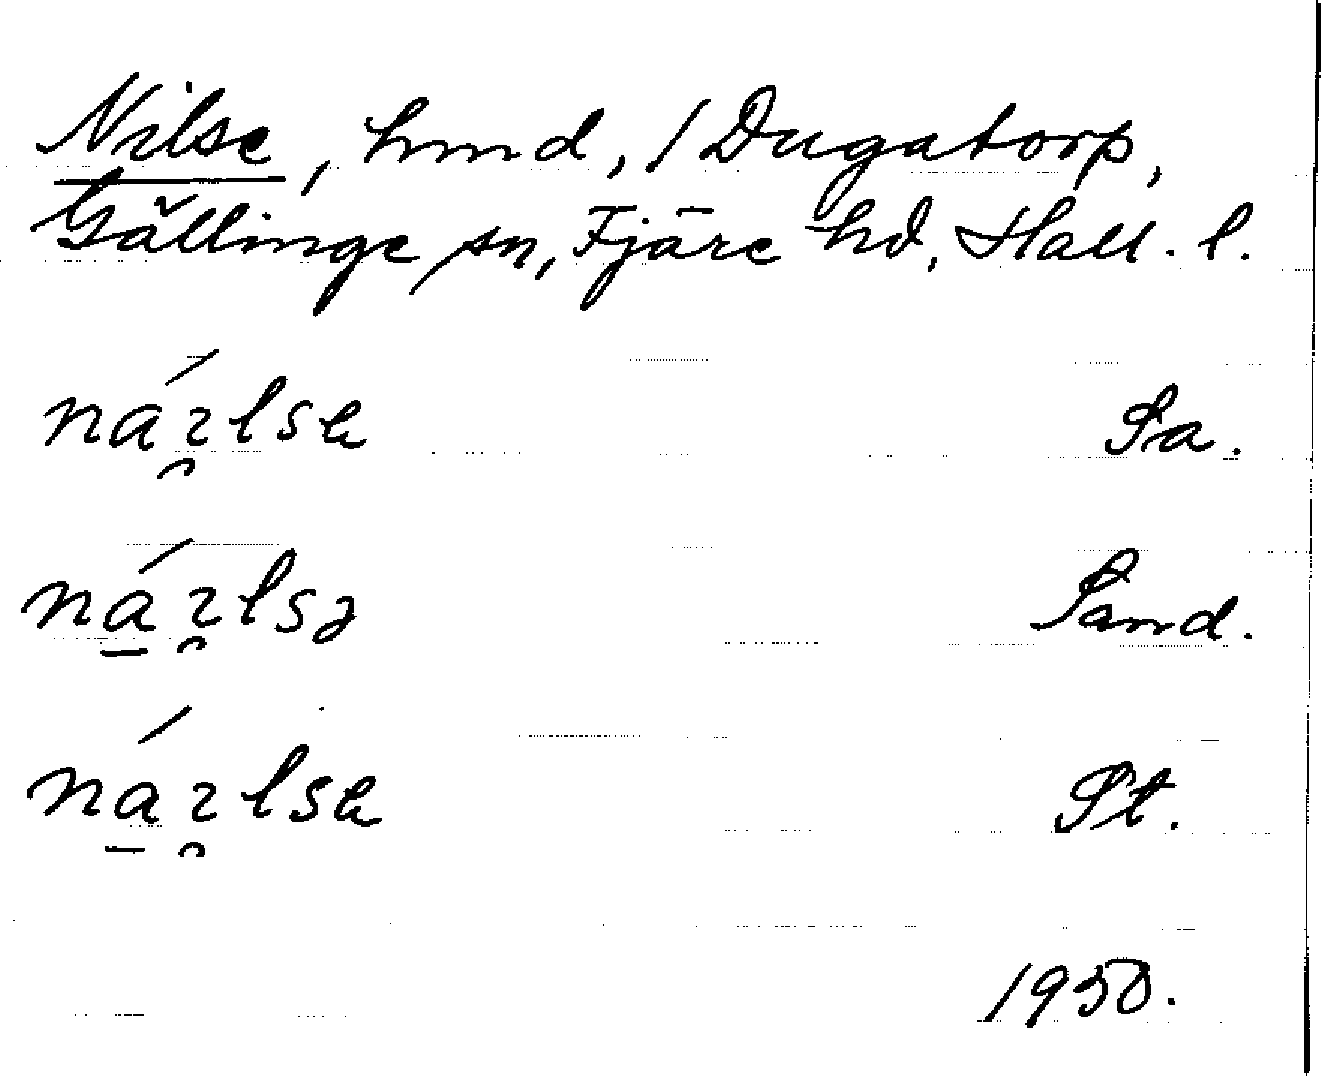 Nilse, hmd, / Dugatorp,
Gällinge sn, Fjäre hd, Hall. l.
náɿ̯lsɐ Sa.
ná̱ɿ̯lsə Sand.
ná̱ɿ̯lsɐ St.
1950.